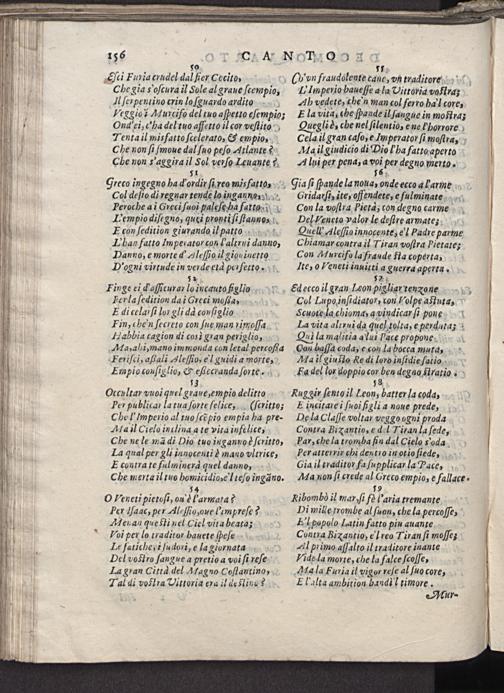 156 CANTO
50
Esci Furia crudel dal fier Cocito,
Che gia s'oscura il Sole al graue scempio,
Il serpentino crin lo sguardo ardito
Veggio i Murcifo del tuo aspetto esempio;
Ond'ei, c'ha del tuo affetto il cor vestito
Tenta il misfatto scelerato, & empio,
Che non si smoue dal suo polo Atlante?
Che non s'aggira il Sol verso Leuante?
51
Greco ingegno ha d'ordir sì reo misfatto,
Col desio di regnar tende lo inganno;
Peroche a i Greci suoi palese ha fatto
L'empio disegno, quei pronti si stanno,
E con sedition giurando il patto
L'han fatto Imperator con l'altrui danno,
Danno, e morte d'Alessio il giouinetto
D'ogni virtude in verde età perfetto.
52
Finge ei d'assicurar lo incauto figlio
Per la sedition da i Greci mossa,
E di celarsi lor gli dà consiglio
Fin, che'n secreto con sue man rimossa
Habbia cagion di così gran periglio,
Ma, ahi, mano immonda con letal percossa
Ferisci, assali Alessio, e'l guidi a morte,
Empio consiglio, & essecranda sorte.
53
Occultar vuoi quel graue, empio delitto
Per publicar la tua sorte felice, (scritto;
Che l'Imperio al tuo scépio empia ha pre-
Ma il Cielo inclina a te vita infelice,
Che ne le mã di Dio tuo inganno è scritto,
La qual per gli innocenti è mano vltrice,
E contra te fulminerà quel danno,
Che merta il tuo homicidio, e'l teso ingãno.
54
O Veneti pietosi, ou'è l'armata?
Per Isaac, per Alessio, oue l'imprese?
Menan questi nel Ciel vita beata;
Voi per lo traditor hauete spese
Le fatiche, i sudori, e la giornata
Del vostro sangue a pretio a voi si rese
La gran Città del Magno Costantino,
Tal di vostra Vittoria era il destino?
55
Ch'vn fraudolente cane, vn traditore
L'Imperio hauesse a la Vittoria vostra;
Ah vedete, che'n man col ferro ha'l core,
E la vita, che spande il sangue in mostra;
Quegli è, che nel silentio, e ne l'horrore
Cela il gran caso, e Imperator si mostra,
Ma il giudicio di Dio l'ha fatto aperto
A lui per pena, a voi per degno merto.
56
Gia si spande la noua, onde ecco a l'arme
Gridarsi, ite, offendete, e fulminate
Con la vostra Pietà, con degno carme
Del Veneto valor le destre armate;
Quell'Alessio innocente, e'l Padre parme
Chiamar contra il Tiran vostra Pietate;
Con Murcifo la fraude sta coperta,
Ite, o Veneti inuitti a guerra aperta.
57
Ed ecco il gran Leon pigliar tenzone
Col Lupo insidiator, con Volpe astuta,
Scuote la chioma, a vindicar si pone
La vita altrui da quel tolta, e perduta;
Qui la mastia a lui l'ace propone
Con bassa coda, e con la bocca muta,
Ma il giusto Re di loro insidie satio
Fa del lor doppio cor ben degno stratio.
58
Ruggir sento il Leon, batter la coda,
E incitare i suoi figli a noue prede,
De la Classe voltar veggo ogni proda
Contra Bizantio, e del Tiran la sede,
Par, che la tromba fin dal Cielo s'oda
Per atterrir chi dentro in otio siede,
Gia il traditor fa supplicar la Pace,
Ma non si crede al Greco empio, e fallace.
59
Ribombò il mar, si fè l'aria tremante
Di mille trombe al suon, che la percosse,
E'l popolo Latin fatto piu auante
Contra Bizantio, e'l reo Tiran si mosse;
Al primo assalto il traditore inante
Vide la morte, che la falce scosse,
Ma la Furia il vigor rese al suo core,
E l'alta ambition bandì l timore.
Mur-